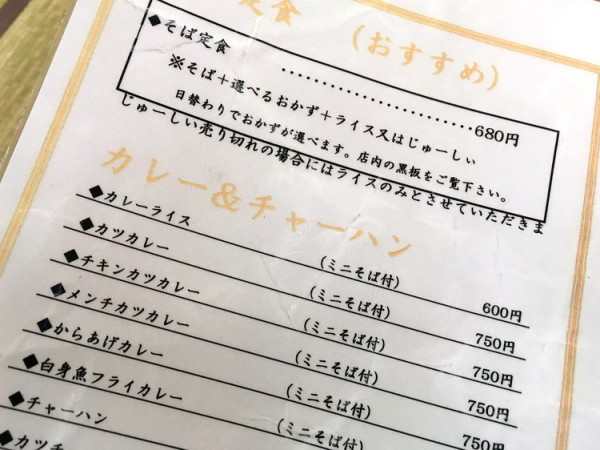 定食 (おすすめ)
◆そば定食 ・・・・・・・・・・・・・・・・・・・・・・680円
※そば+選べるおかず+ライス又はじゅーしぃ
日替わりでおかずが選べます。店内の黒板をご覧下さい。
じゅーしい売り切れの場合にはライスのみとさせていただきま
カレー&チャーハン
◆カレーライス (ミニそば付) 600円
◆カツカレー (ミニそば付) 750円
◆チキンカツカレー (ミニそば付) 750円
◆メンチカツカレー (ミニそば付) 750円
◆からあげカレー (ミニそば付) 750円
◆白身魚フライカレー (ミニそば付)
◆チャーハン
◆カツチ